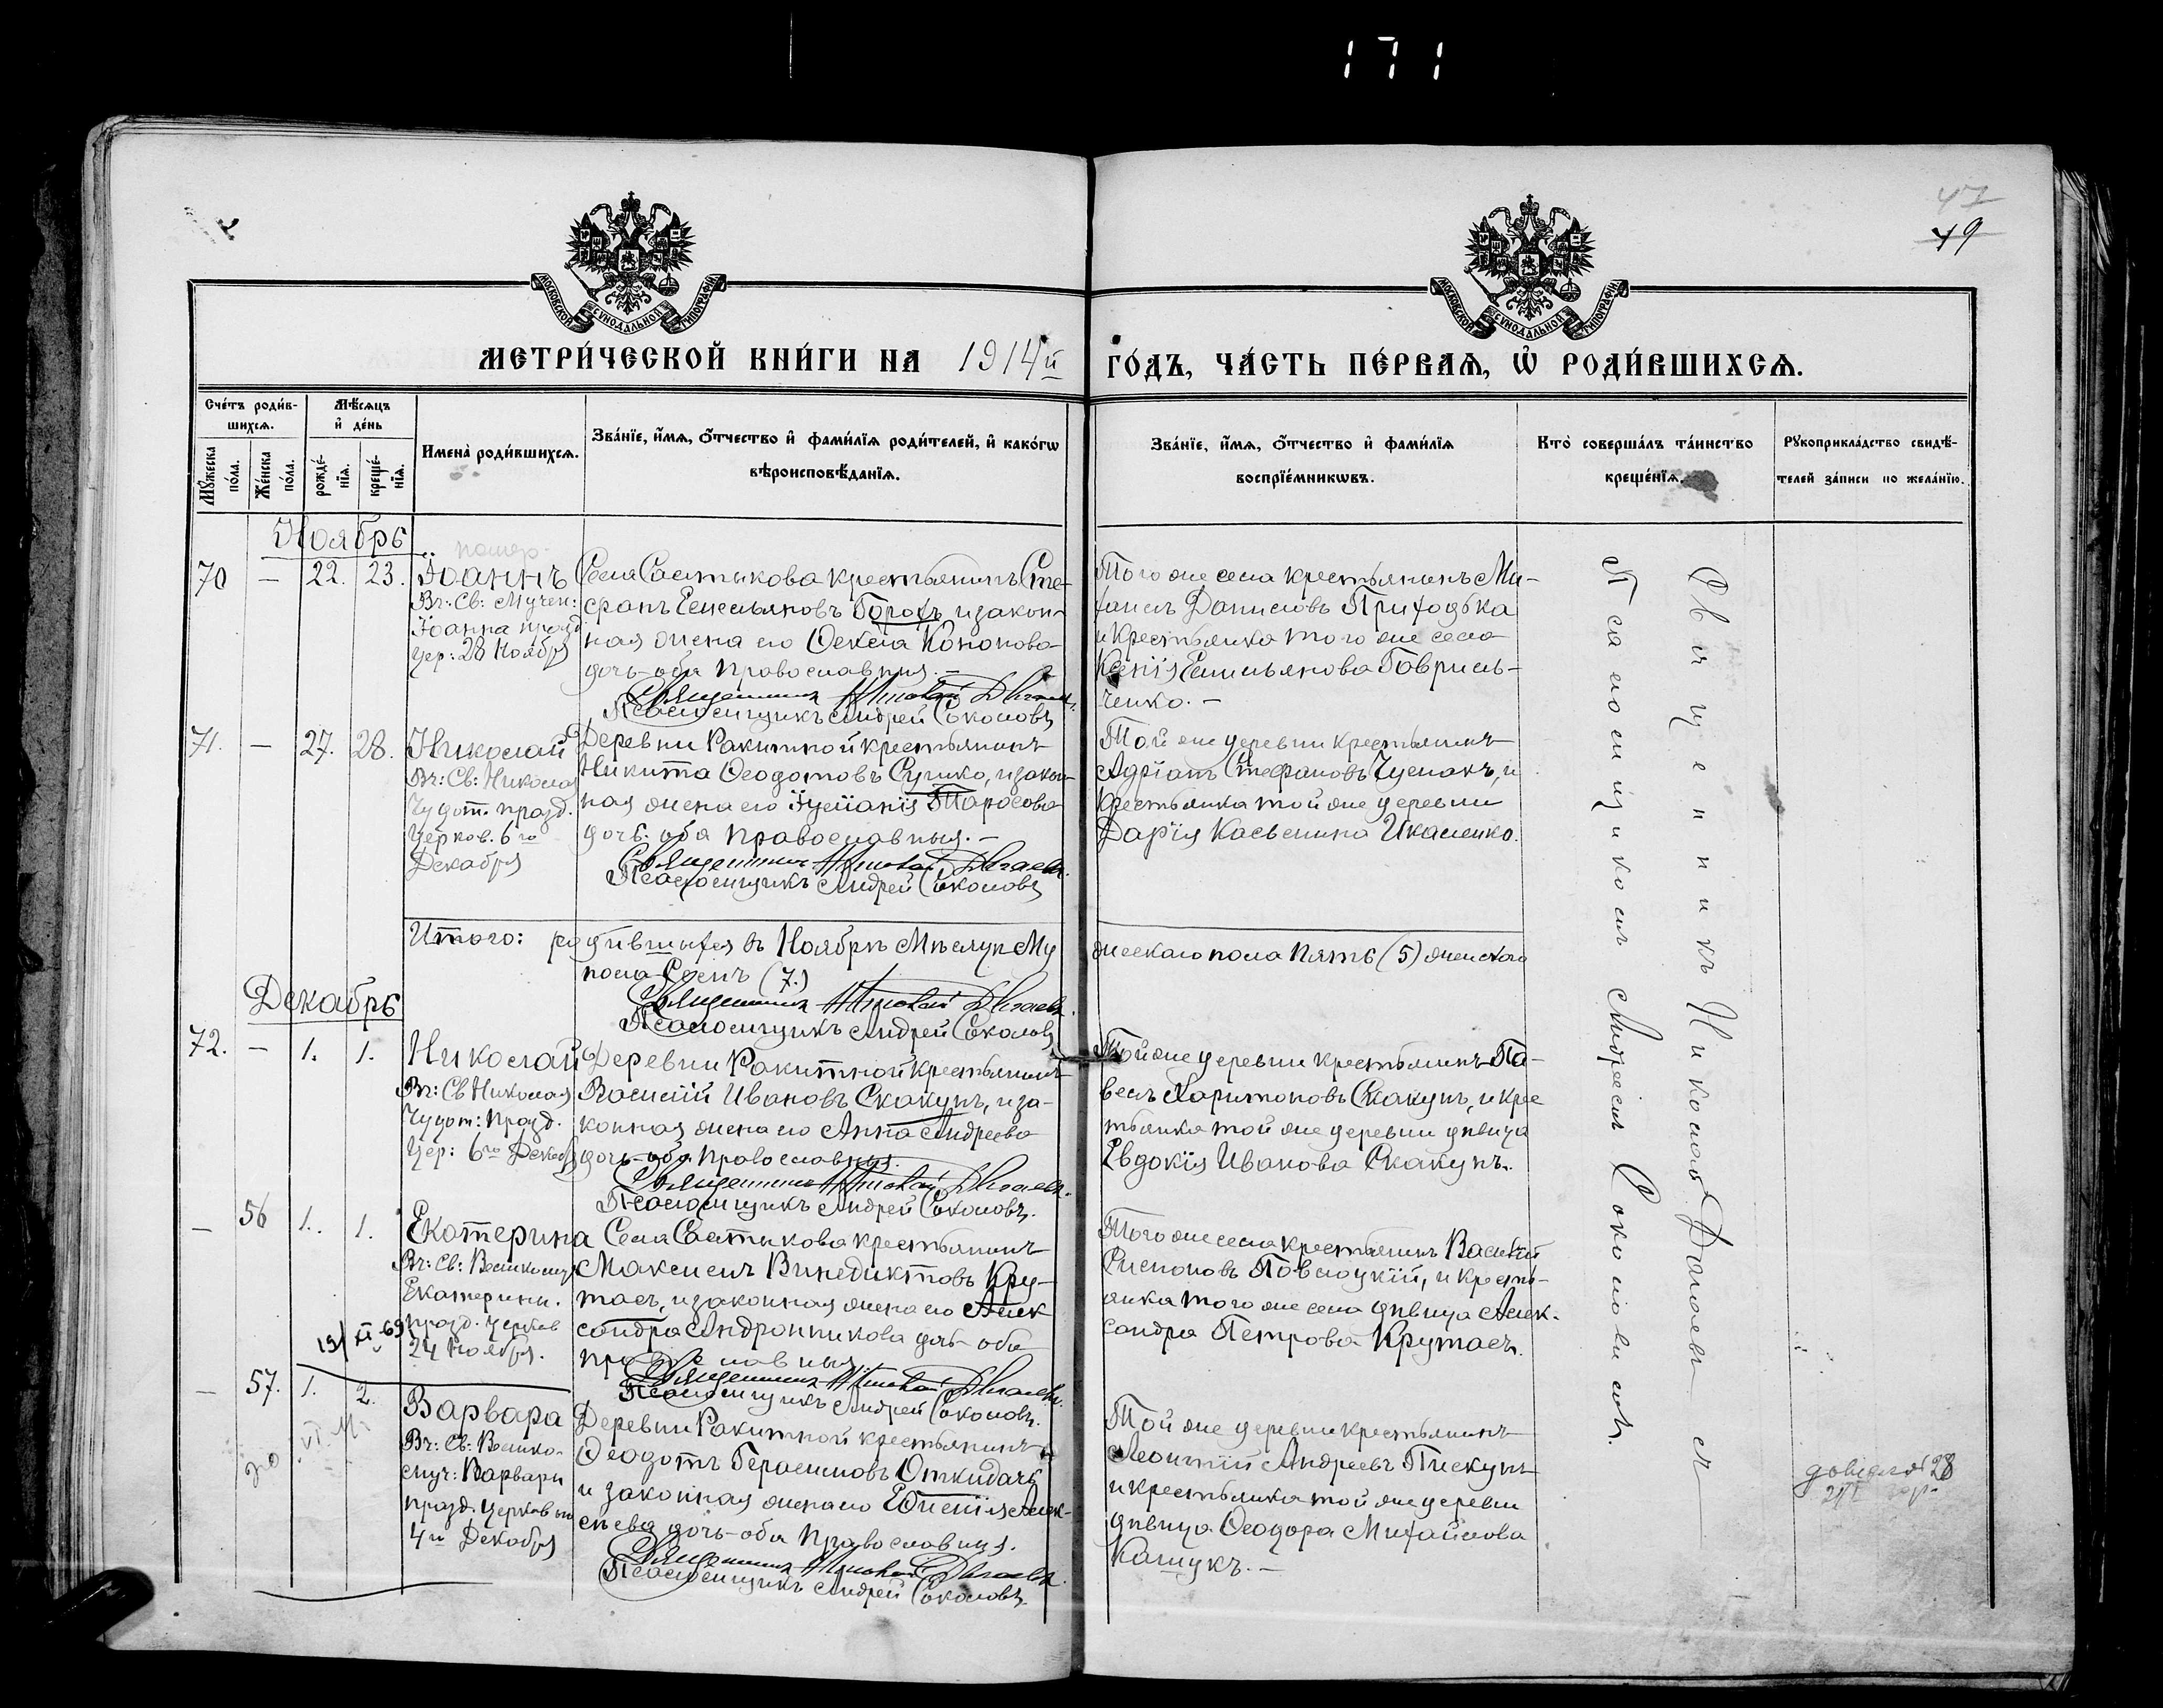 171
47
49
МОСКОВСКОЙ СУНОДАЛЬНОЙ ТИПОГРАФІИ
МОСКОВСКОЙ СУНОДАЛЬНОЙ ТИПОГРАФІИ
МЕТРИ́ЧЕСКОЙ КНИ́ГИ НА 1914й ГО́ДЪ, ЧА́СТЬ ПЕ́РВАЯ, Ѡ҆ РОДИ́ВШИХСЯ.
Сче́тъ роди́вшихся.
Мꙋ́жеска по́ла.
Же́нска по́ла.
Мѣ́сяцъ и҆ де́нь
рожде́нїя.
креще́нїя.
Имена̀ роди́вшихся.
Зва́нїе, и҆́мя, ѻ҆́тчество и҆ фами́лїя роди́телей, и҆ како́гѡ
вѣроисповѣ́данїя.
Зва́нїе, и҆́мя, ѻ҆́тчество и҆ фами́лїя
воспрїе́мникѡвъ.
Кто̀ соверша́лъ та́инство
креще́нїя.
Рꙋкоприкла́дство свидѣ́-
телей за́писи по жела́нїю.
Ноябрь
70 — 22. 23. Іоаннъ
Въ: Св: Мучен:
Іоанна празд.
Цер: 28 Ноября
Села Салтыкова крестьянинъ Сте-
фанъ Емельяновъ Горохъ, и закон-
ная жена его Ѳекла Кононова
дочь-оба православныя.—
Священникъ Николай
Псаломщикъ Андрей Соколовъ
Того же села крестьянинъ Ми-
хаилъ Даниловъ Приходька
и крестьянка того же села
Ксенія Емельянова Гаврись-
ченко.—
71. — 27. 28. Николай
Въ: Св: Николая
Чудот. празд.
Церков. 6го
Декабря
Деревни Ракитной крестьянинъ
Никита Ѳеодотовъ Сушко, и закон-
ная жена его Іуліанія Тарасова
дочь. оба православныя.—
Священникъ Николай
Псаломщикъ Андрей Соколовъ
Той же деревни крестьянинъ
Адріанъ Стефановъ Чумакъ, и
крестьянка той же деревни
Дарія Касьянина Икаленко.
Итого: родившихся въ Ноябрѣ Мѣсяцѣ Му
жескаго пола Пять (5) женскаго
пола Семь (7.)
Священникъ Николай
Псаломщикъ Андрей Соколовъ
Декабрь
72. — 1. 1. Николай
Въ: Св Николая
Чудот: празд.
Цер: 6го Декабр
Деревни Ракитной крестьянинъ
Василій Ивановъ Скакунъ, и за-
конная жена его Анна Андреева
дочь-оба православныя.
Священникъ Николай
Псаломщикъ Андрей Соколовъ.
Той же деревни крестьянинъ Па-
велъ Харитоновъ Скакунъ, и крес
тьянка той же деревни дѣвица
Евдокія Иванова Скакунъ.
— 56 1. 1. Екатерина
Въ: Св: Великомуч
Екатерины.
празд. церков
24 Ноября.
Села Салтыкова крестьянинъ
Максимъ Винедиктовъ Кру-
тась, и законная жена его Алек
сандра Андронникова дочь-оба
православныя.
Священникъ Николай
Псаломщикъ Андрей Соколовъ.
Того же села крестьянинъ Василій
Симоновъ Павлоцкій, и кресть-
янка того же села дѣвица Алек-
сандра Петрова Крутась.
— 57. 1. 2. Варвара
Въ: Св: Велико-
муч: Варвары
празд. церковью
4го Декабря
Деревни Ракитной крестьянинъ
Ѳеодотъ Герасимовъ Откидачъ
и законная жена его Евгенія Алек-
сѣева дочь-оба православныя.
Священникъ Николай
Псаломщикъ Андрей Соколовъ.
Той же деревни крестьянинъ
Леонтій Андреевъ Пискунъ
и крестьянка той же деревни
дѣвица Ѳеодора Михайлова
Кашукъ.—
Священникъ Николай съ
Псаломщикомъ Андреемъ Соколовымъ.